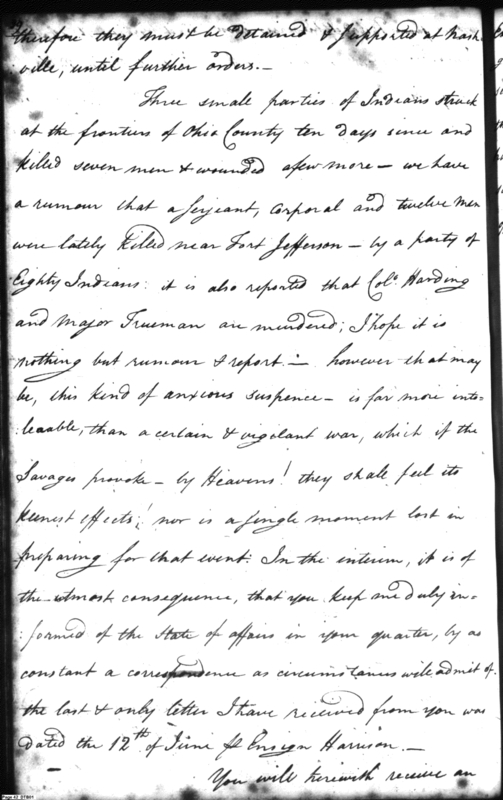 therefore they must be detained & supported at Nash-
ville, until further orders.—
Three small parties of Indians struck
at the frontiers of Ohio County ten days since and
killed seven men & wounded a few more — we have
a rumour that a serjeant, corporal and twelve men
were lately killed near Fort Jefferson — by a party of
Eighty Indians: it is also reported that Colo. Harding
and Major Trueman are murdered; I hope it is
nothing but rumour & report.— however that may
be, this kind of anxious suspence — is far more into-
:leaable, than a certain & vigelant war, which if the
Savages provoke — by Heavens! they shall feel its
keenest effects! nor is a single moment lost in
preparing for that event. In the interim, it is of
the utmost consequence, that you keep me duly in=
:formed of the State of affairs in your quarter, by as
constant a correspondence as circumstances will admit of.
the last & only letter I have received from you was
dated the 12th of June p Ensign Harrison.—
You will herewith receive an